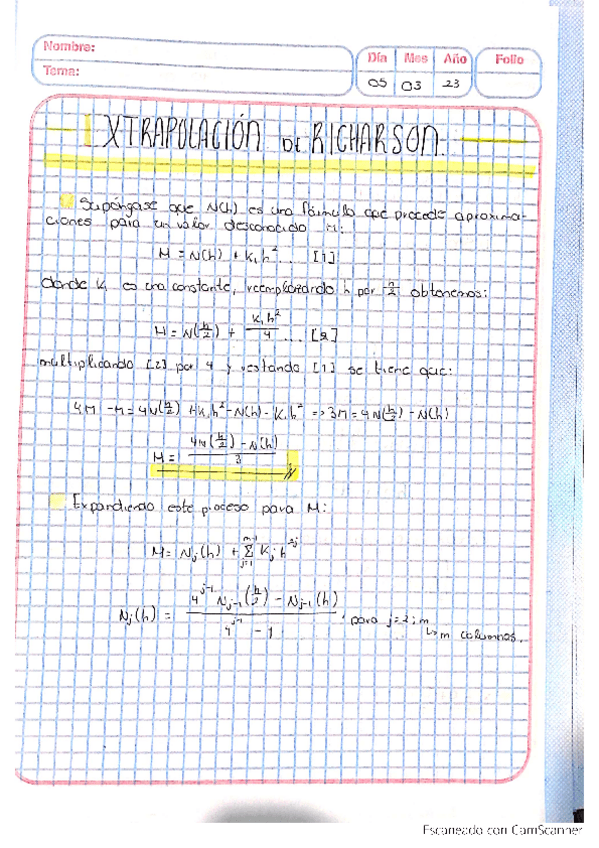 Nombre:
Tema:
Día Mes Año Folio
05 03 23
EXTRAPOLACIÓN DE RICHARSON.
Supóngase que N(h) es una fórmula que procede aproxima-
ciones para un valor desconocido M:
M = N(h) + K₁h² ... [1]
donde K₁ es una constante, reemplazando h por h/2 obtenemos:
M = N(h/2) + K₁h²/4 ... [2]
multiplicando [2] por 4 y restando [1] se tiene que:
4M - M = 4N(h/2) + K₁h² - N(h) - K₁h² => 3M = 4N(h/2) - N(h)
M = (4N(h/2) - N(h))/3
Expandiendo este proceso para M:
M = Nj(h) + Σ_{j=1}^{m-1} Kj h^{2j}
Nj(h) = (4^{j-1} N_{j-1}(h/2) - N_{j-1}(h))/(4^{j-1} - 1), para j=2:m
↳ m columnas.
Escaneado con CamScanner